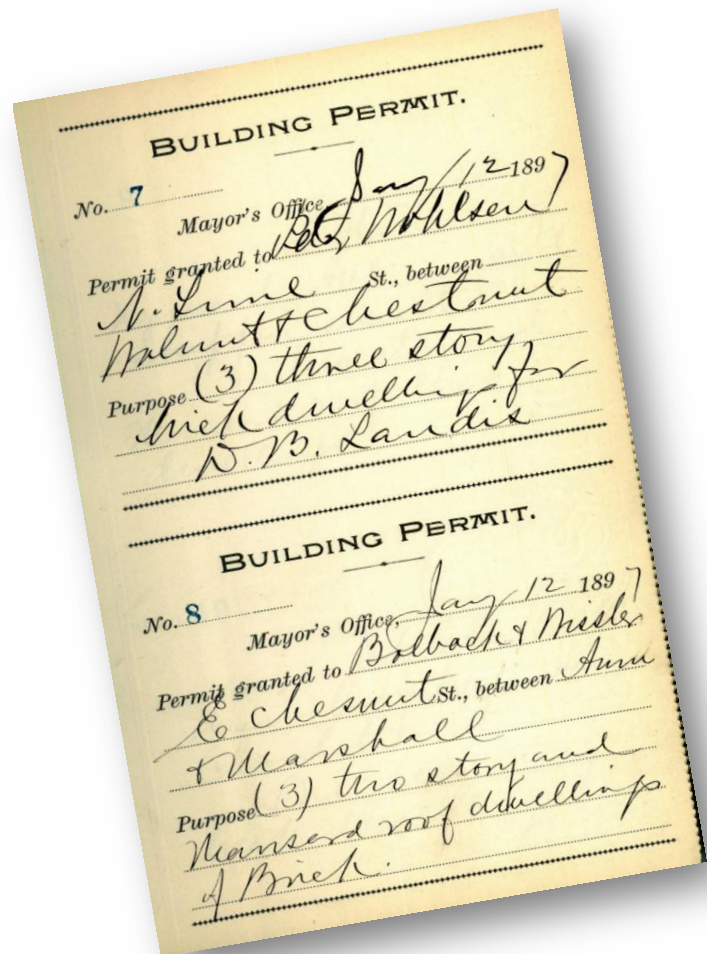 BUILDING PERMIT.
No. 7
Mayor's Office, Jany 12 1897
Permit granted to Wohlsen
N. Lime St., between
Walnut & Chestnut
Purpose (3) three story
brick dwellings for
D. B. Landis
BUILDING PERMIT.
No. 8
Mayor's Office, Jany 12 1897
Permit granted to Bolback & Wissler
E Chesnut St., between Ann
& Marshall
Purpose (3) two story and
Mansard roof dwellings
of Brick.